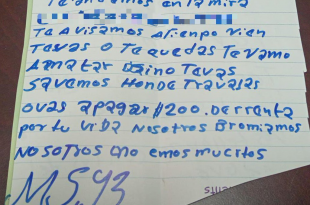 Te tenemos en la mira
Te Avisamos Atienpo vien
Tevas O Te quedas Te vamo
Amatar Sino Tevas
Savemos Honde Travajas
ovas apagar $200. De rrenta
por tu vida Nosotros Bromiamos
NOSOTROS ano emos muertos
MS.13